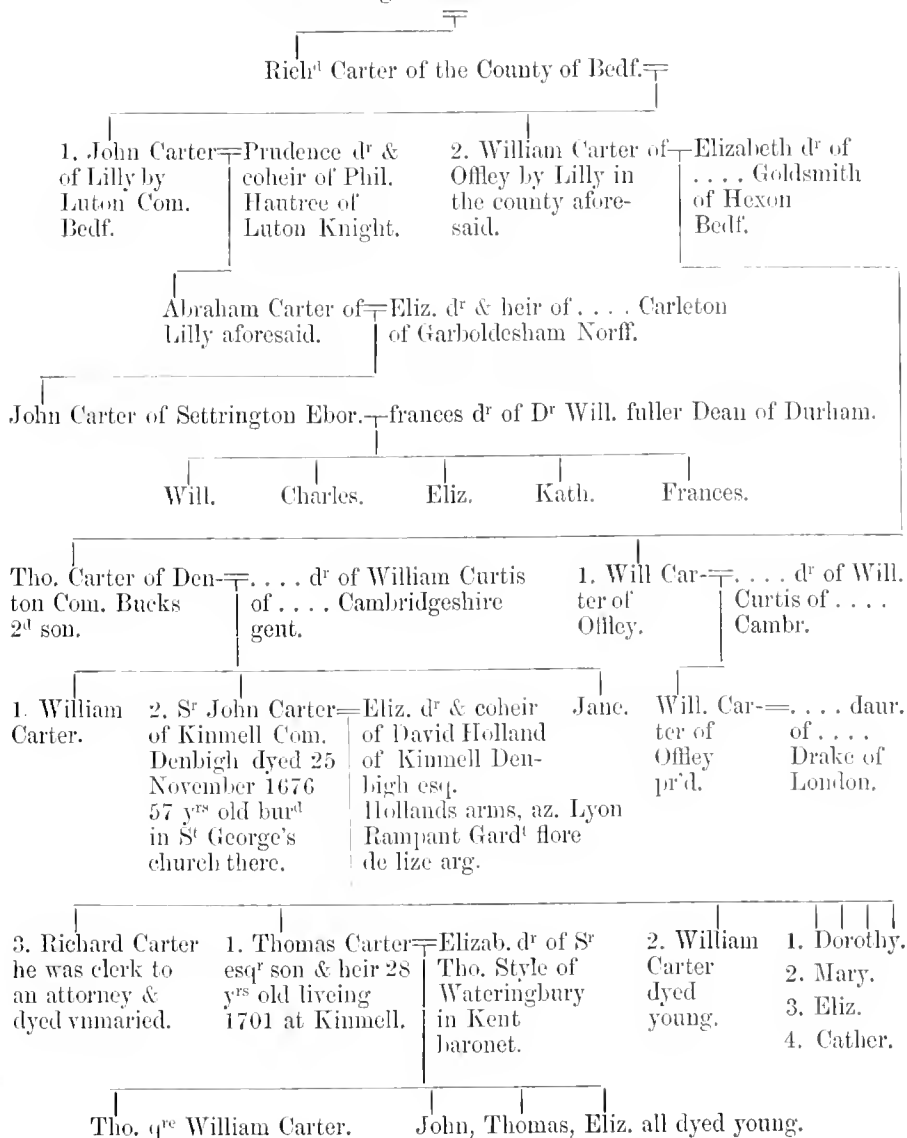 Rich^d Carter of the County of Bedf.
1. John Carter of Lilly by Luton Com. Bedf.
Prudence d^r & coheir of Phil. Hautree of Luton Knight.
2. William Carter of Offley by Lilly in the county aforesaid.
Elizabeth d^r of .... Goldsmith of Hexon Bedf.
Abraham Carter of Lilly aforesaid.
Eliz. d^r & heir of .... Carleton of Garboldesham Norff.
John Carter of Settrington Ebor.
frances d^r of D^r Will. fuller Dean of Durham.
Will. Charles. Eliz. Kath. Frances.
Tho. Carter of Denton Com. Bucks 2^d son.
.... d^r of William Curtis of .... Cambridgeshire gent.
1. Will Carter of Offley.
.... d^r of Will. Curtis of .... Cambr.
1. William Carter.
2. S^r John Carter of Kinmell Com. Denbigh dyed 25 November 1676 57 y^rs old bur^d in S^t George's church there.
Eliz. d^r & coheir of David Holland of Kinmell Denbigh esq. Hollands arms, az. Lyon Rampant Gard^t flore de lize arg.
Jane.
Will. Carter of Offley pr'd.
.... daur. of .... Drake of London.
3. Richard Carter he was clerk to an attorney & dyed vnmaried.
1. Thomas Carter esq^r son & heir 28 y^rs old liveing 1701 at Kinmell.
Elizab. d^r of S^r Tho. Style of Wateringbury in Kent baronet.
2. William Carter dyed young.
1. Dorothy.
2. Mary.
3. Eliz.
4. Cather.
Tho. q^re William Carter.
John, Thomas, Eliz. all dyed young.